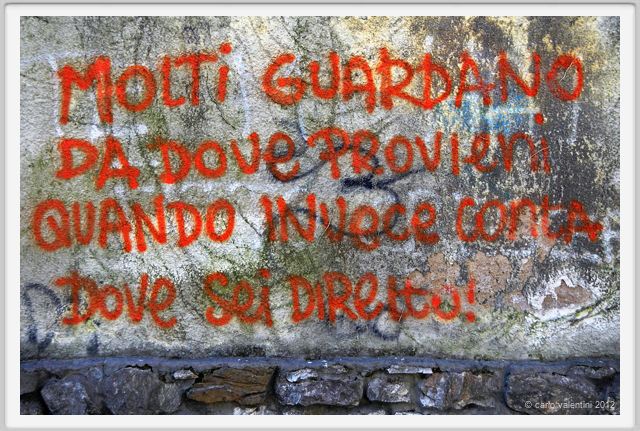 MOLTi GUARDANO
DA DOVE PROVIENi
QUANDO INVECE CONTA
DOVE Sei DIRETTO!
© carlo valentini 2012